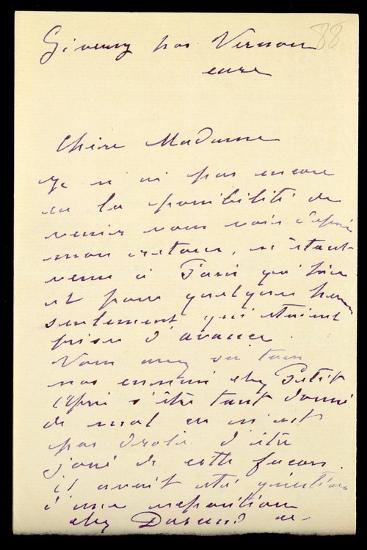 88
Giverny par Vernon
eure
Chère Madame
Je n'ai pas encore
eu la possibilité de
venir vous voir depuis
mon retour, n'étant
venu à Paris qu'hier
et pour quelques heures
seulement qui étaient
prises d'avance.
Vous avez su tous
nos ennuis chez Petit
après s'être tant donné
de mal ce n'est
pas drole d'être
joué de cette façon.
il avait été question
d'une exposition
chez Durand